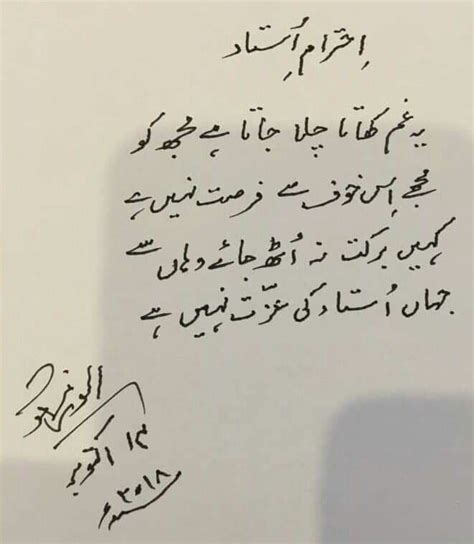 اِحترامِ اُستاد
یہ غم کھاتا چلا جاتا ہے مجھ کو
مجھے اِس خوف سے فرصت نہیں ہے
کہیں برکت نہ اُٹھ جائے وہاں سے
جہاں اُستاد کی عزّت نہیں ہے
انور
۱۳ اکتوبر
۲۰۱۸ء